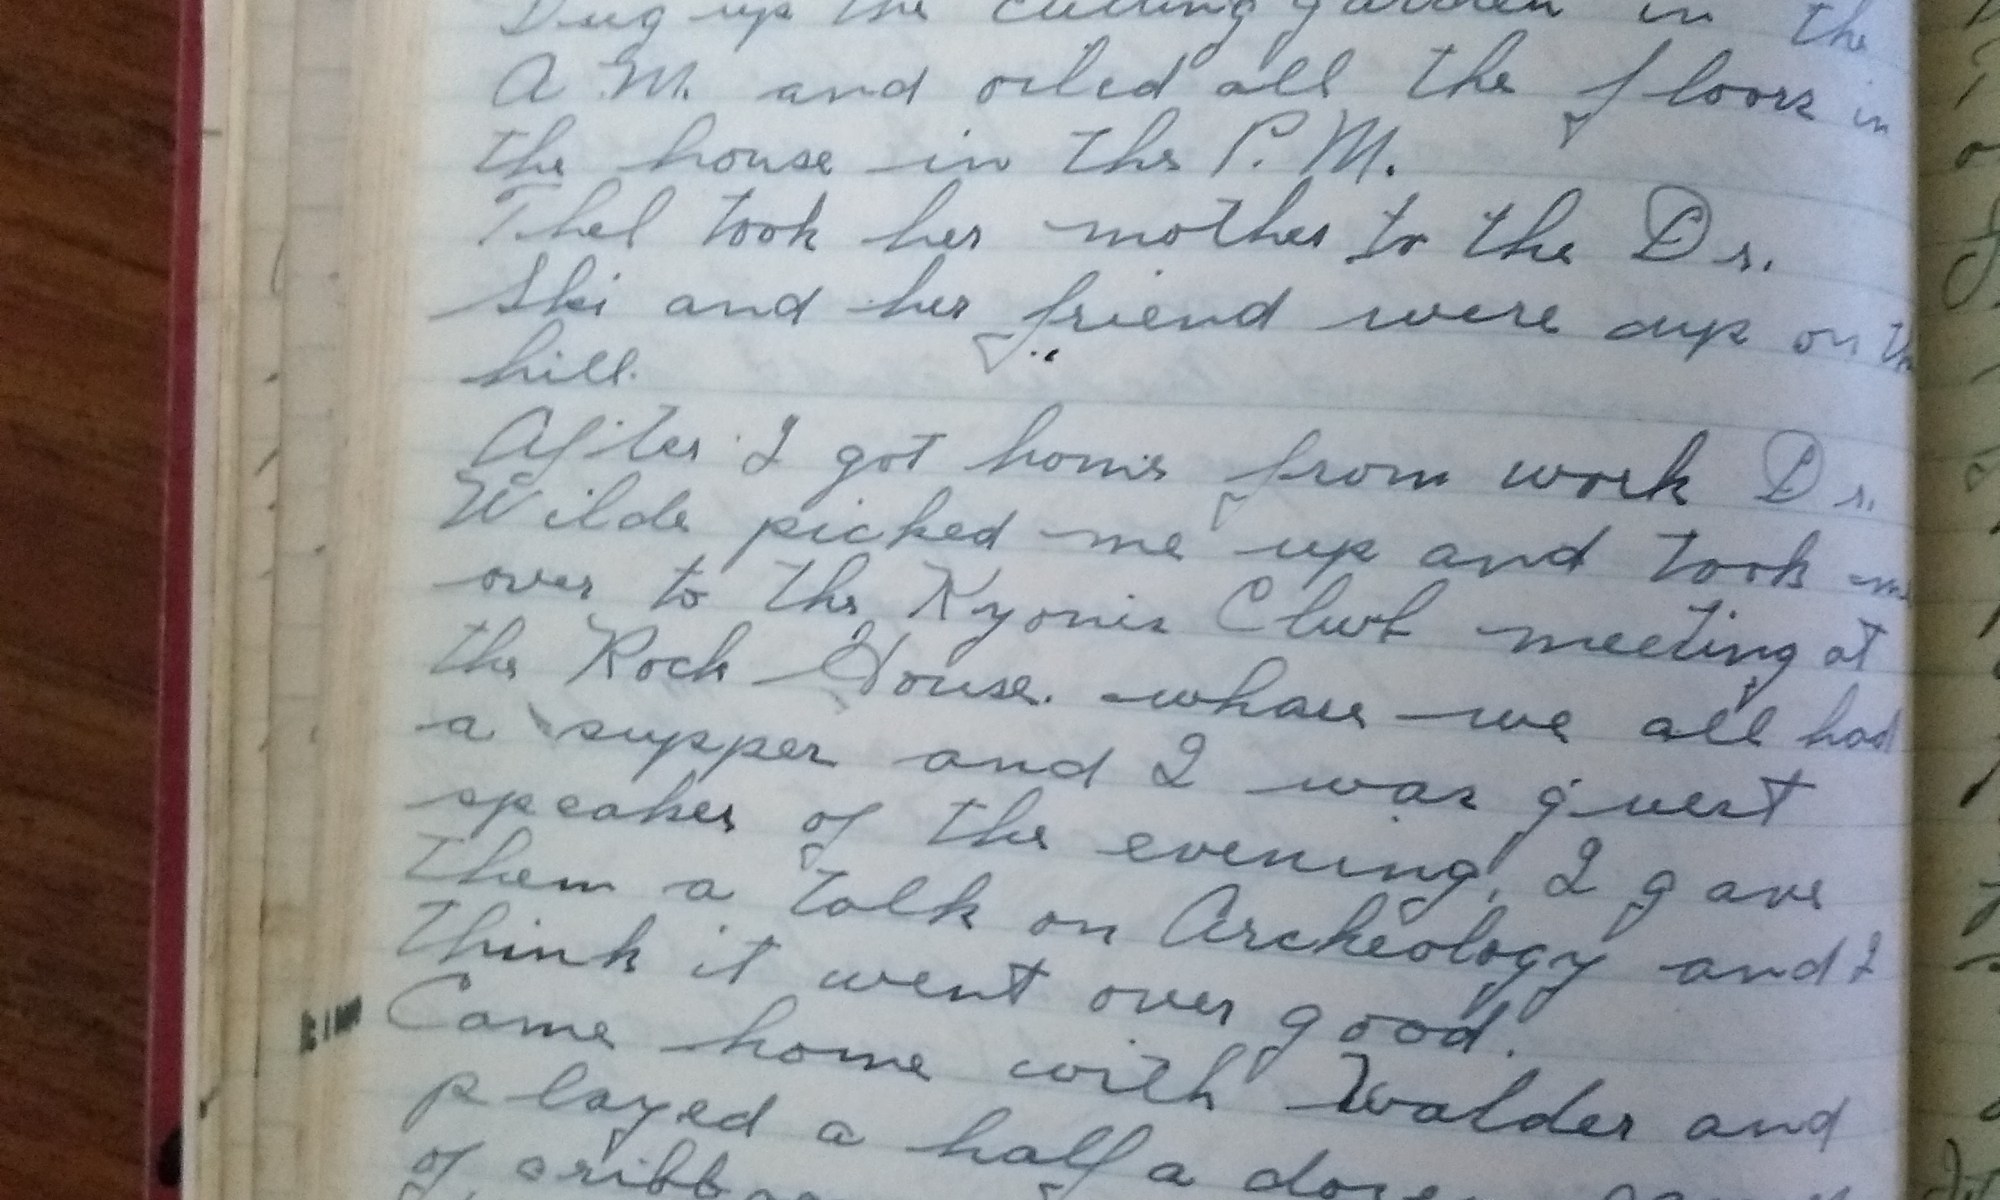 Dug up the cutting garden in the
A.M. and oiled all the floors in
the house in the P.M.
Thel took her mother to the Dr.
Ski and her friend were up on the
hill.
After I got home from work Dr.
Wilde picked me up and took me
over to the Kyonis Club meeting at
the Rock House. whare we all had
a supper and I was guest
speaker of the evening, I gave
them a talk on Archeology and I
think it went over good.
Came home with Walder and
played a half a dozen
of cribbage